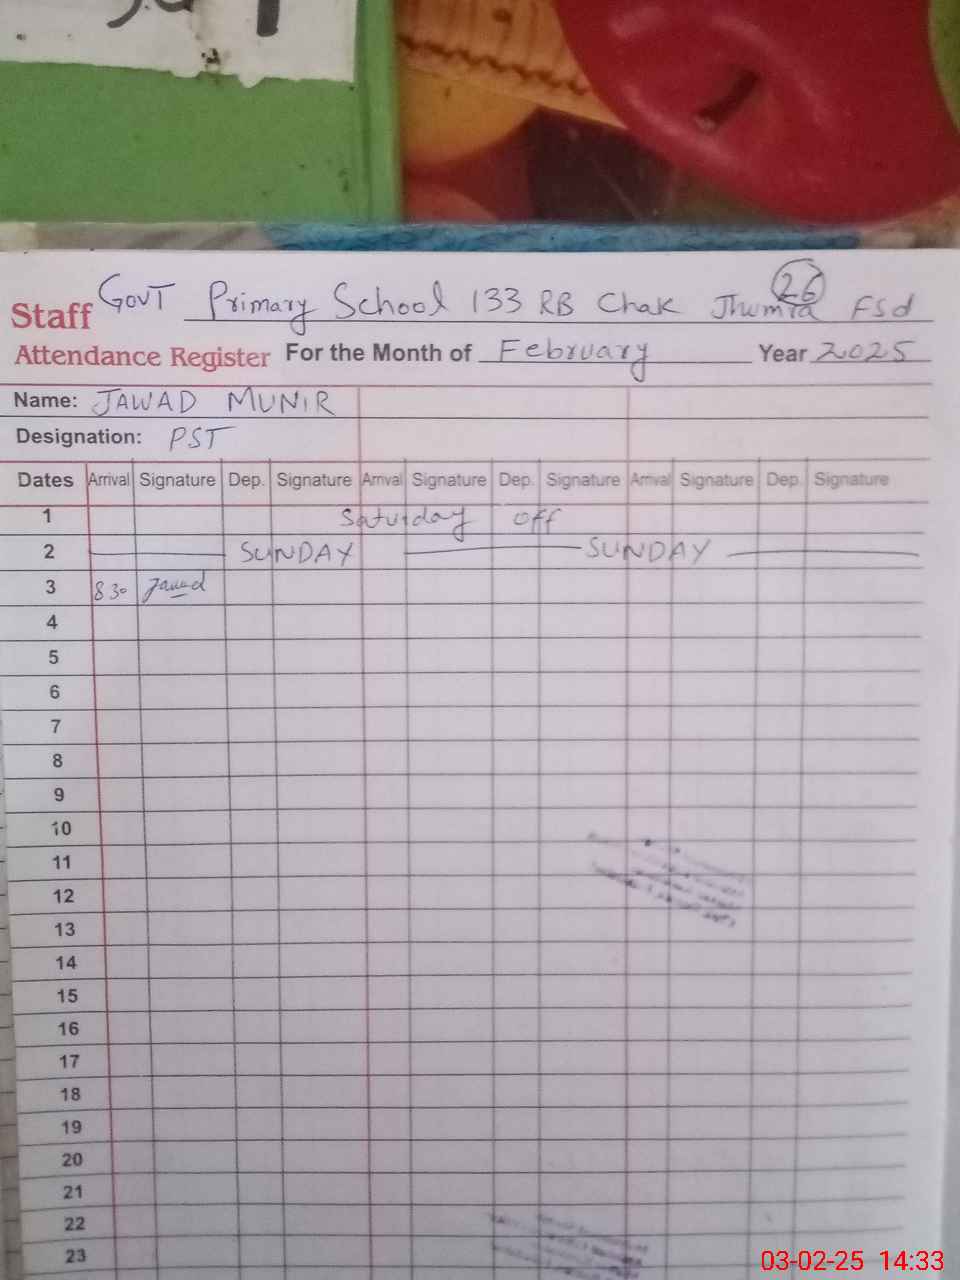 GovT Primary School 133 RB Chak Jhumra FSd
26
Staff
Attendance Register For the Month of February Year 2025
Name: JAWAD MUNIR
Designation: PST
Dates Arrival Signature Dep. Signature Arrival Signature Dep. Signature Arrival Signature Dep. Signature
1 Saturday off
2 SUNDAY SUNDAY
3 8 30 Jawad
4
5
6
7
8
9
10
11
12
13
14
15
16
17
18
19
20
21
22
23
03-02-25 14:33